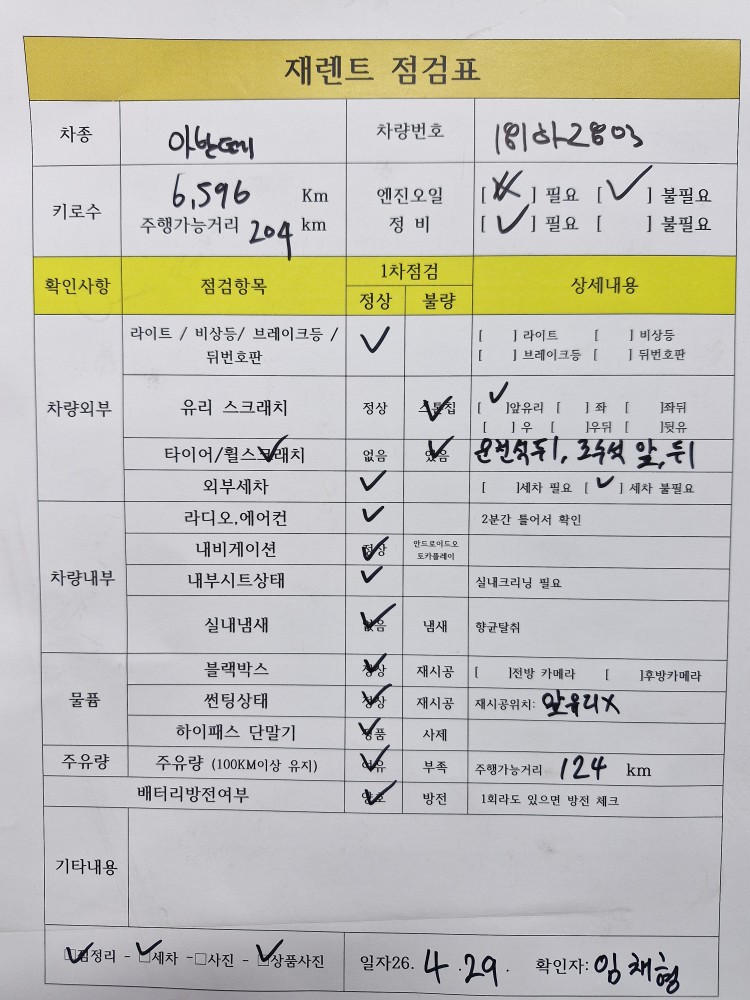 재렌트 점검표
차종 아반떼 차량번호 181하2803
키로수 6,596 Km 엔진오일 [ ] 필요 [ ✓ ] 불필요
주행가능거리 204 km 정 비 [ ✓ ] 필요 [ ] 불필요
확인사항 점검항목 1차점검 상세내용
정상 불량
차량외부 라이트 / 비상등/ 브레이크등 / 뒤번호판 ✓ [ ] 라이트 [ ] 비상등
[ ] 브레이크등 [ ] 뒤번호판
유리 스크래치 정상 스톤칩 ✓ [ ✓ ]앞유리 [ ] 좌 [ ]좌뒤
[ ] 우 [ ]우뒤 [ ]뒷유
타이어/휠스크래치 ✓ 없음 있음 ✓ 운전석뒤, 조수석 앞,뒤
외부세차 ✓ [ ]세차 필요 [ ✓ ] 세차 불필요
차량내부 라디오,에어컨 ✓ 2분간 틀어서 확인
내비게이션 정상 ✓ 안드로이드오
토카플레이
내부시트상태 ✓ 실내크리닝 필요
실내냄새 없음 ✓ 냄새 향균탈취
물품 블랙박스 정상 ✓ 재시공 [ ]전방 카메라 [ ]후방카메라
썬팅상태 정상 ✓ 재시공 재시공위치: 앞유리X
하이패스 단말기 정품 ✓ 사제
주유량 주유량 (100KM이상 유지) 여유 ✓ 부족 주행가능거리 124 km
배터리방전여부 양호 ✓ 방전 1회라도 있으면 방전 체크
기타내용
✓ □짐정리 - ✓ □세차 - □사진 - ✓ □상품사진 일자26. 4 .29. 확인자: 임채형